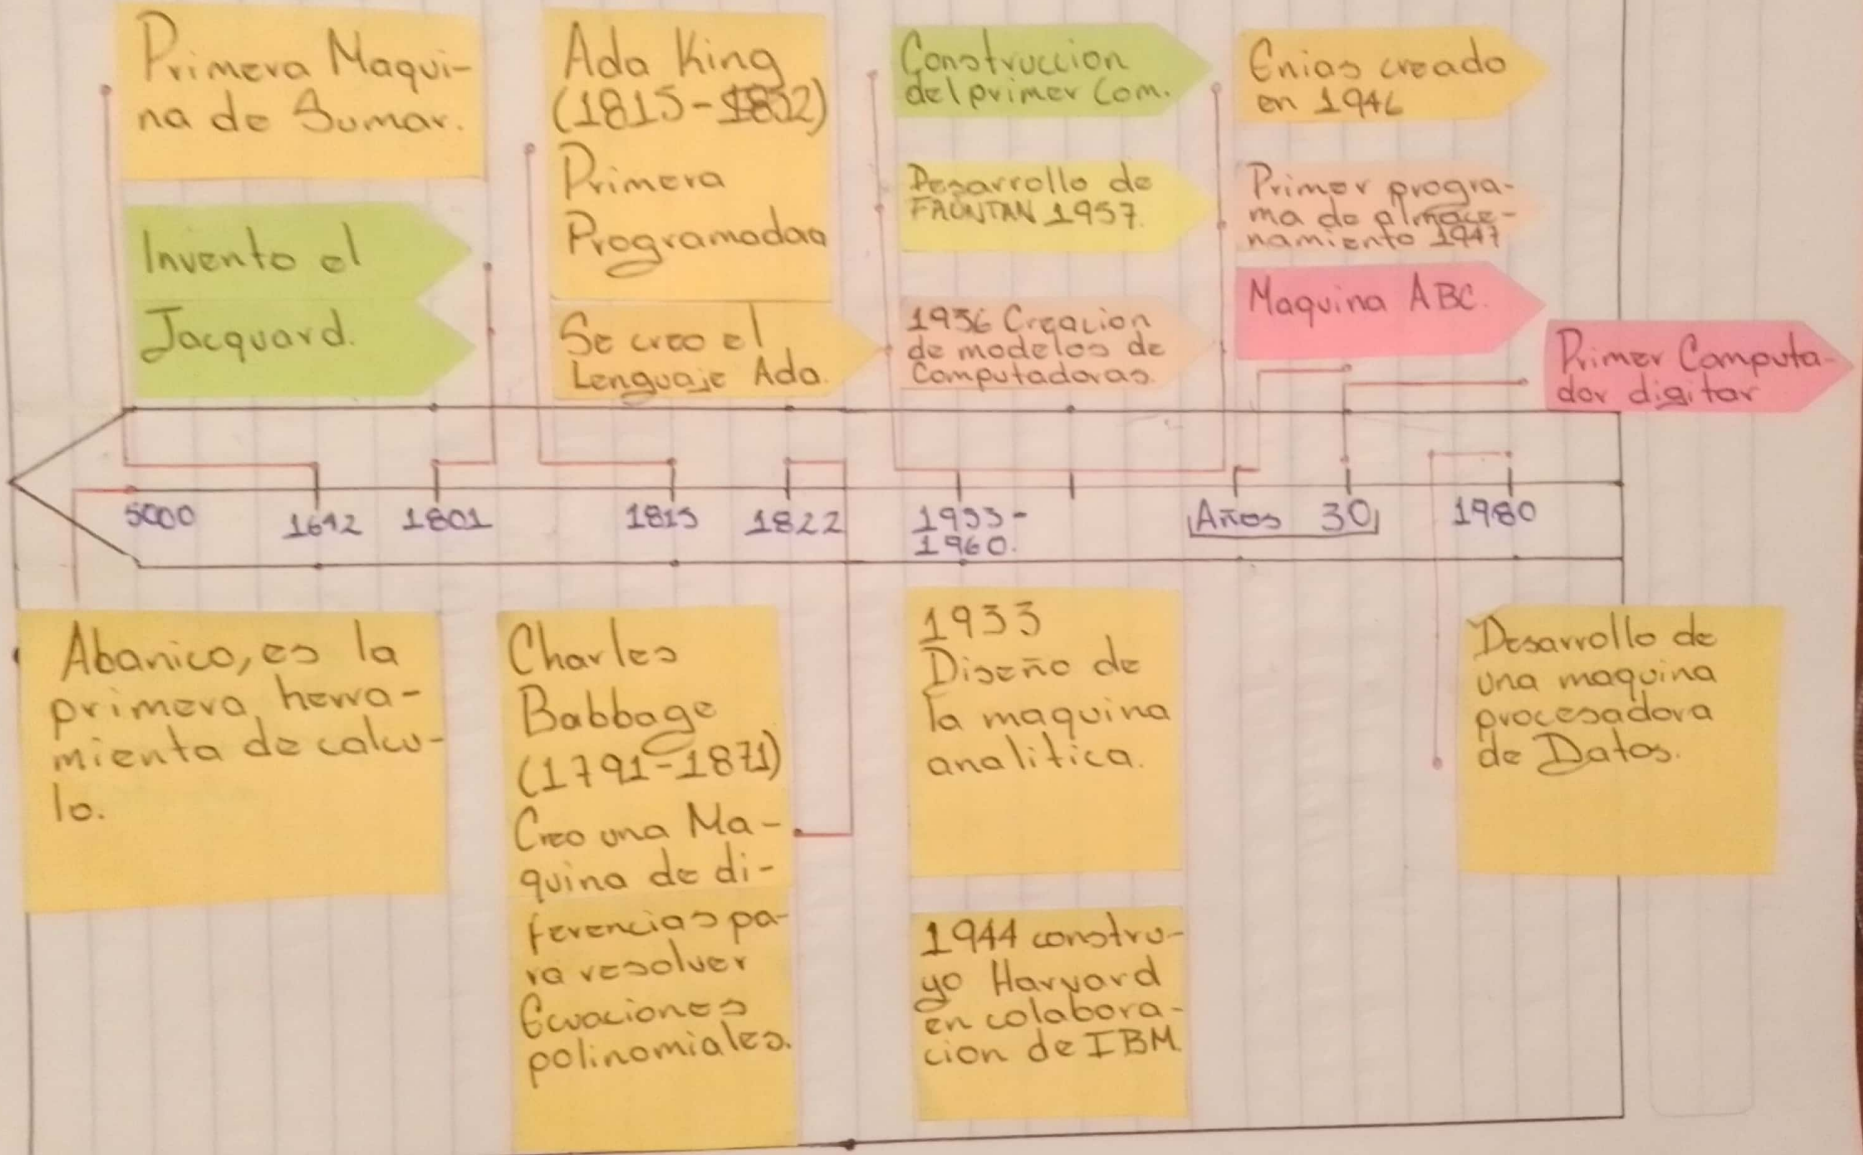 Primera Maqui-
na de Sumar.
Invento el
Jacquard.
Ada King
(1815-1852)
Primera
Programadaa
Se creo el
Lenguaje Ada.
Construccion
del primer Com.
Desarrollo de
1957.
1936 Creacion
de modelos de
Computadoras.
Enias creado
en 1946
Primer progra-
ma de almace-
namiento 1947
Maquina ABC.
Primer Computa-
dor digitar
5000
1642
1801
1815
1822
1933-
1960.
Años 30
1980
Abanico, es la
primera herra-
mienta de calcu-
lo.
Charles
Babbage
(1791-1871)
Creo una Ma-
quina de di-
ferencias pa-
ra resolver
Ecuaciones
polinomiales.
1933
Diseño de
la maquina
analitica.
1944 constru-
yo Harvard
en colabora-
cion de IBM
Desarrollo de
una maquina
procesadora
de Datos.